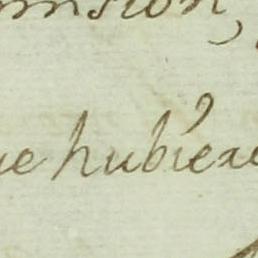 mision,
ue hubiere